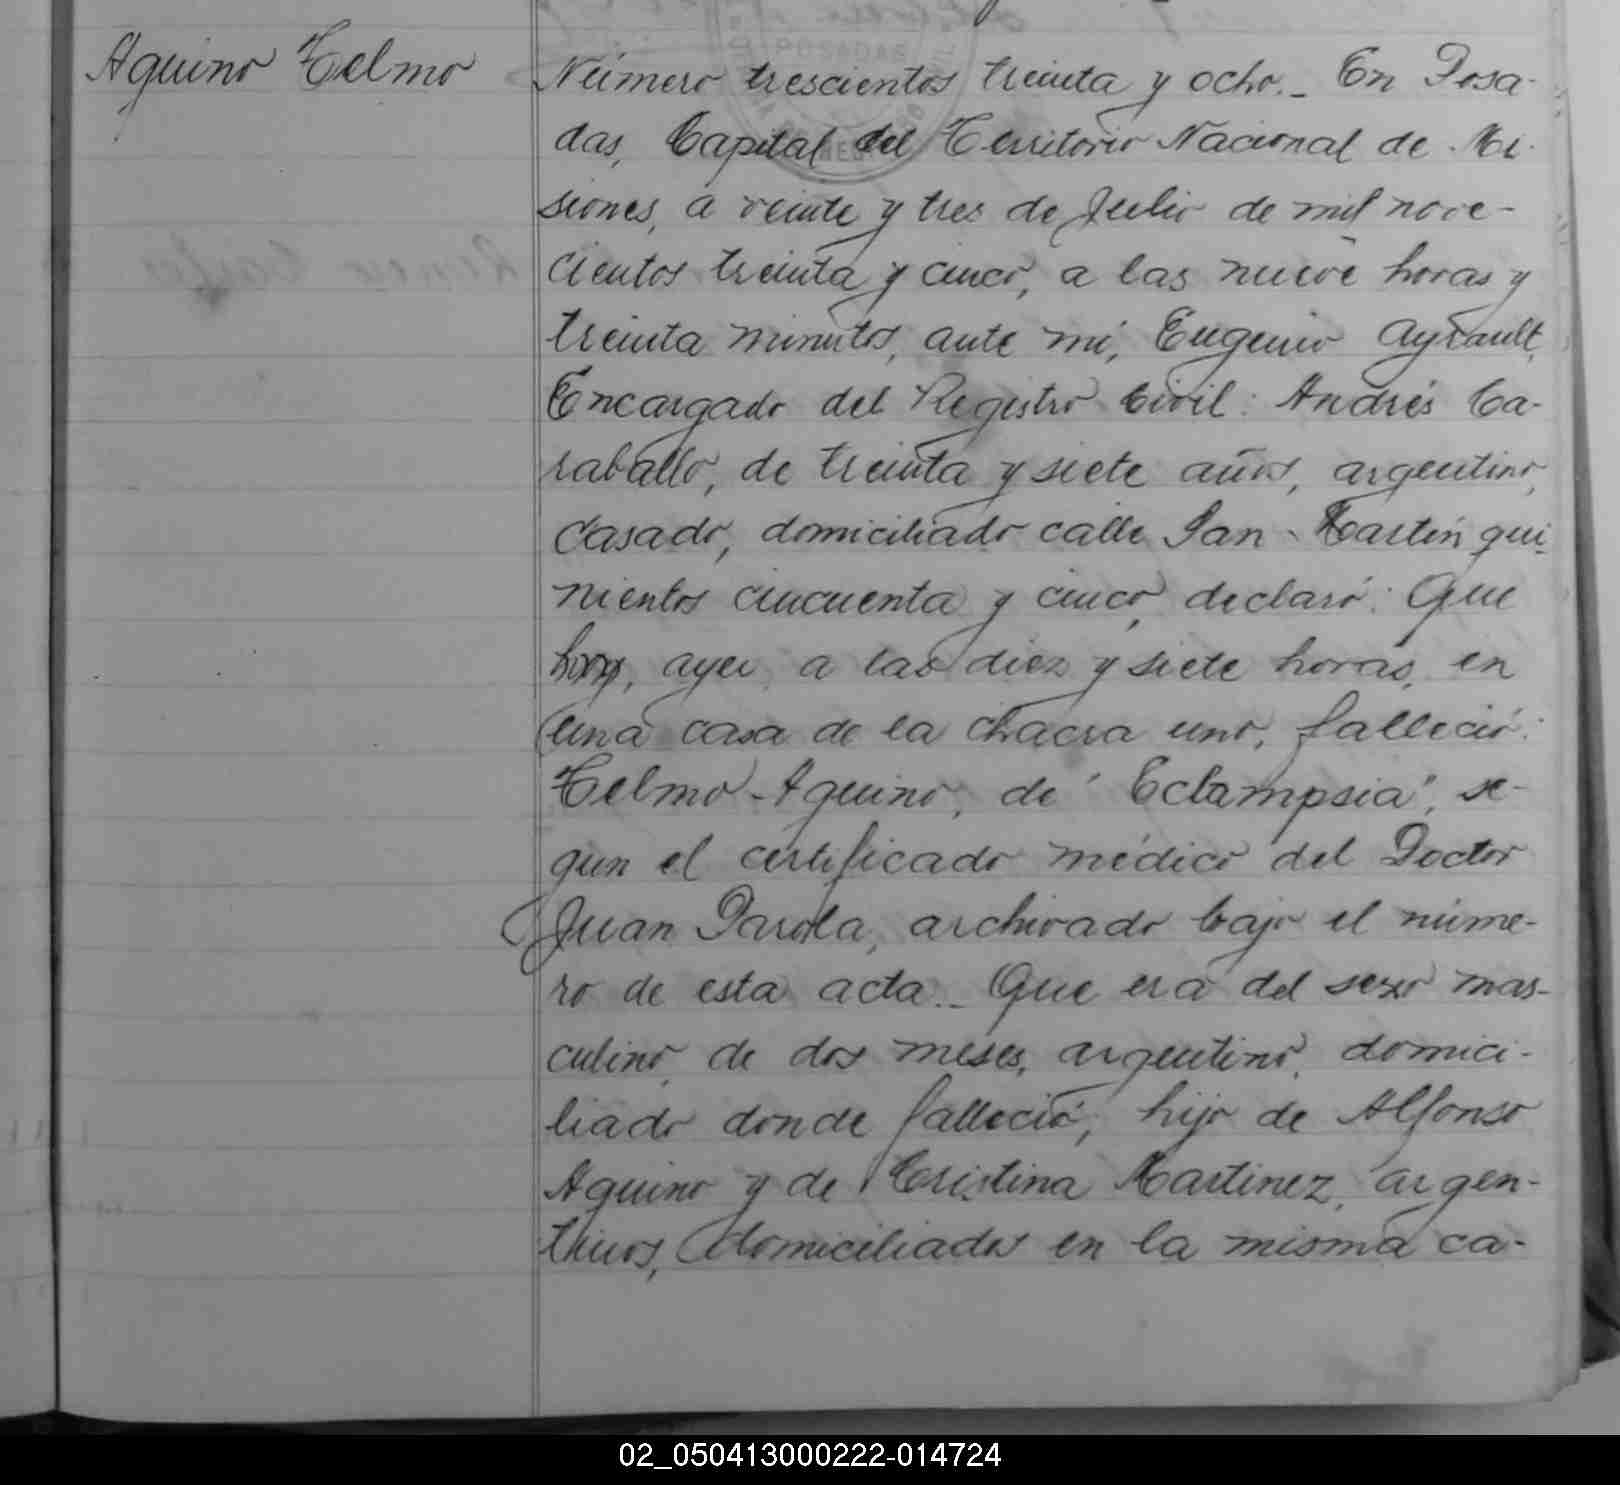 Aquino Telmo
Número trescientos treinta y ocho._ En Posa-
das, Capital del Territorio Nacional de Mi-
siones, a veinte y tres de Julio de mil nove-
cientos treinta y cinco, a las nueve horas y
treinta minutos, ante mí, Eugenio Ayrault,
Encargado del Registro Civil: Andrés Ca-
raballo, de treinta y siete años, argentino,
casado, domiciliado calle San Martín qui-
nientos cincuenta y cinco, declaró: Que
hoy, ayer, a las diez y siete horas, en
una casa de la chacra uno, falleció:
Telmo Aquino, de "Eclampsia", se-
gun el certificado médico del Doctor
Juan Parola, archivado bajo el núme-
ro de esta acta._ Que era del sexo mas-
culino, de dos meses, argentino, domici-
liado donde falleció, hijo de Alfonso
Aquino y de Cristina Martinez, argen-
tinos, domiciliados en la misma ca-
02_050413000222-014724